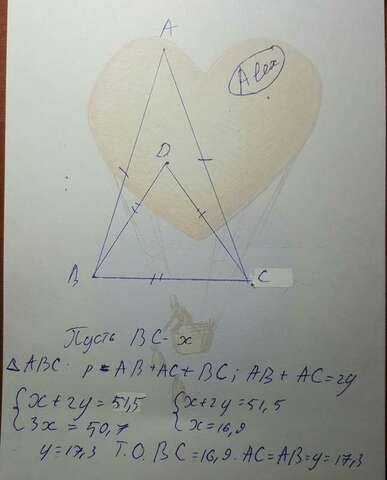 A
Alex
D
B
C
Пусть BC - x
△ABC. P = AB + AC + BC; AB + AC = 2y
{x + 2y = 51,5 {x + 2y = 51,5
{3x = 50,7 {x = 16,9
y = 17,3 Т.О. BC = 16,9. AC = AB = y = 17,3